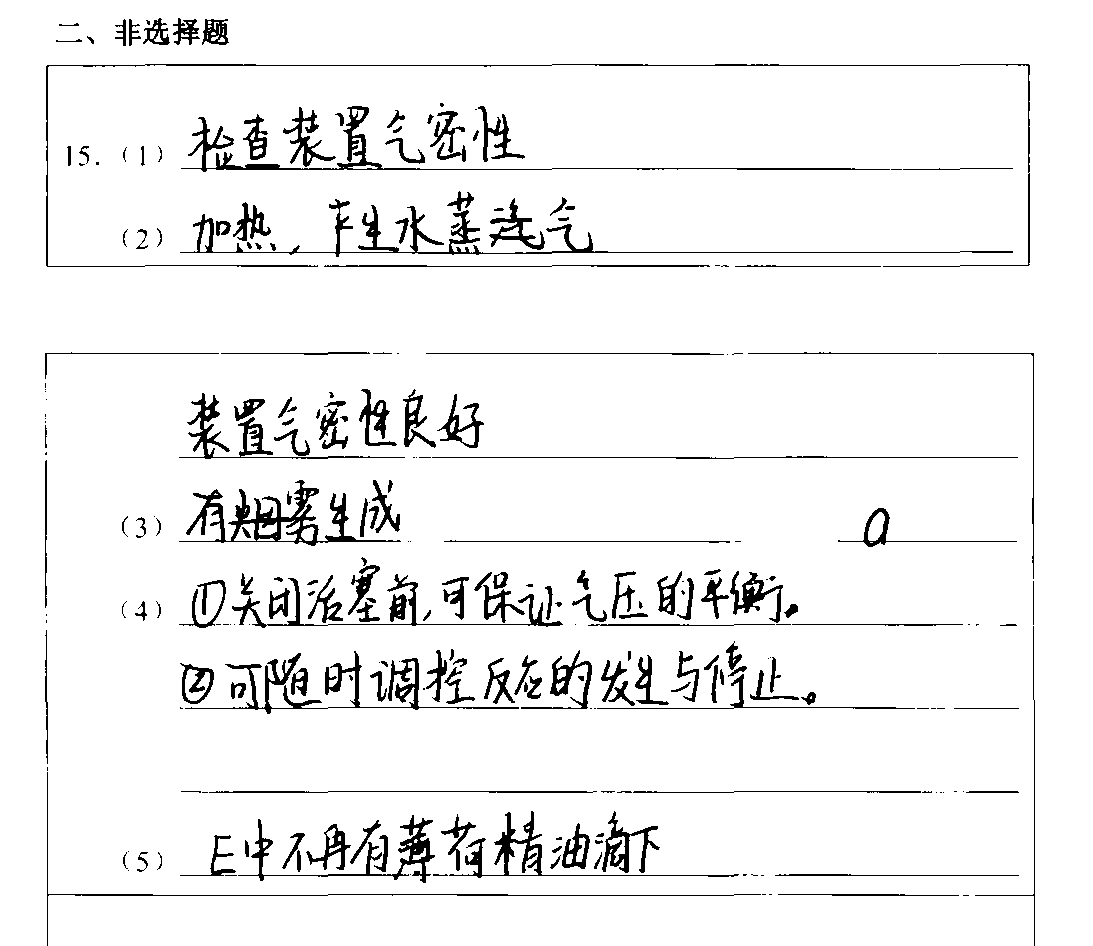 二、非选择题
15.（1）检查装置气密性
（2）加热，产生水蒸气
装置气密性良好
（3）有烟雾生成 a
（4）①关闭活塞前,可保证气压的平衡。
②可随时调控反应的发生与停止。
（5）E中不再有薄荷精油滴下